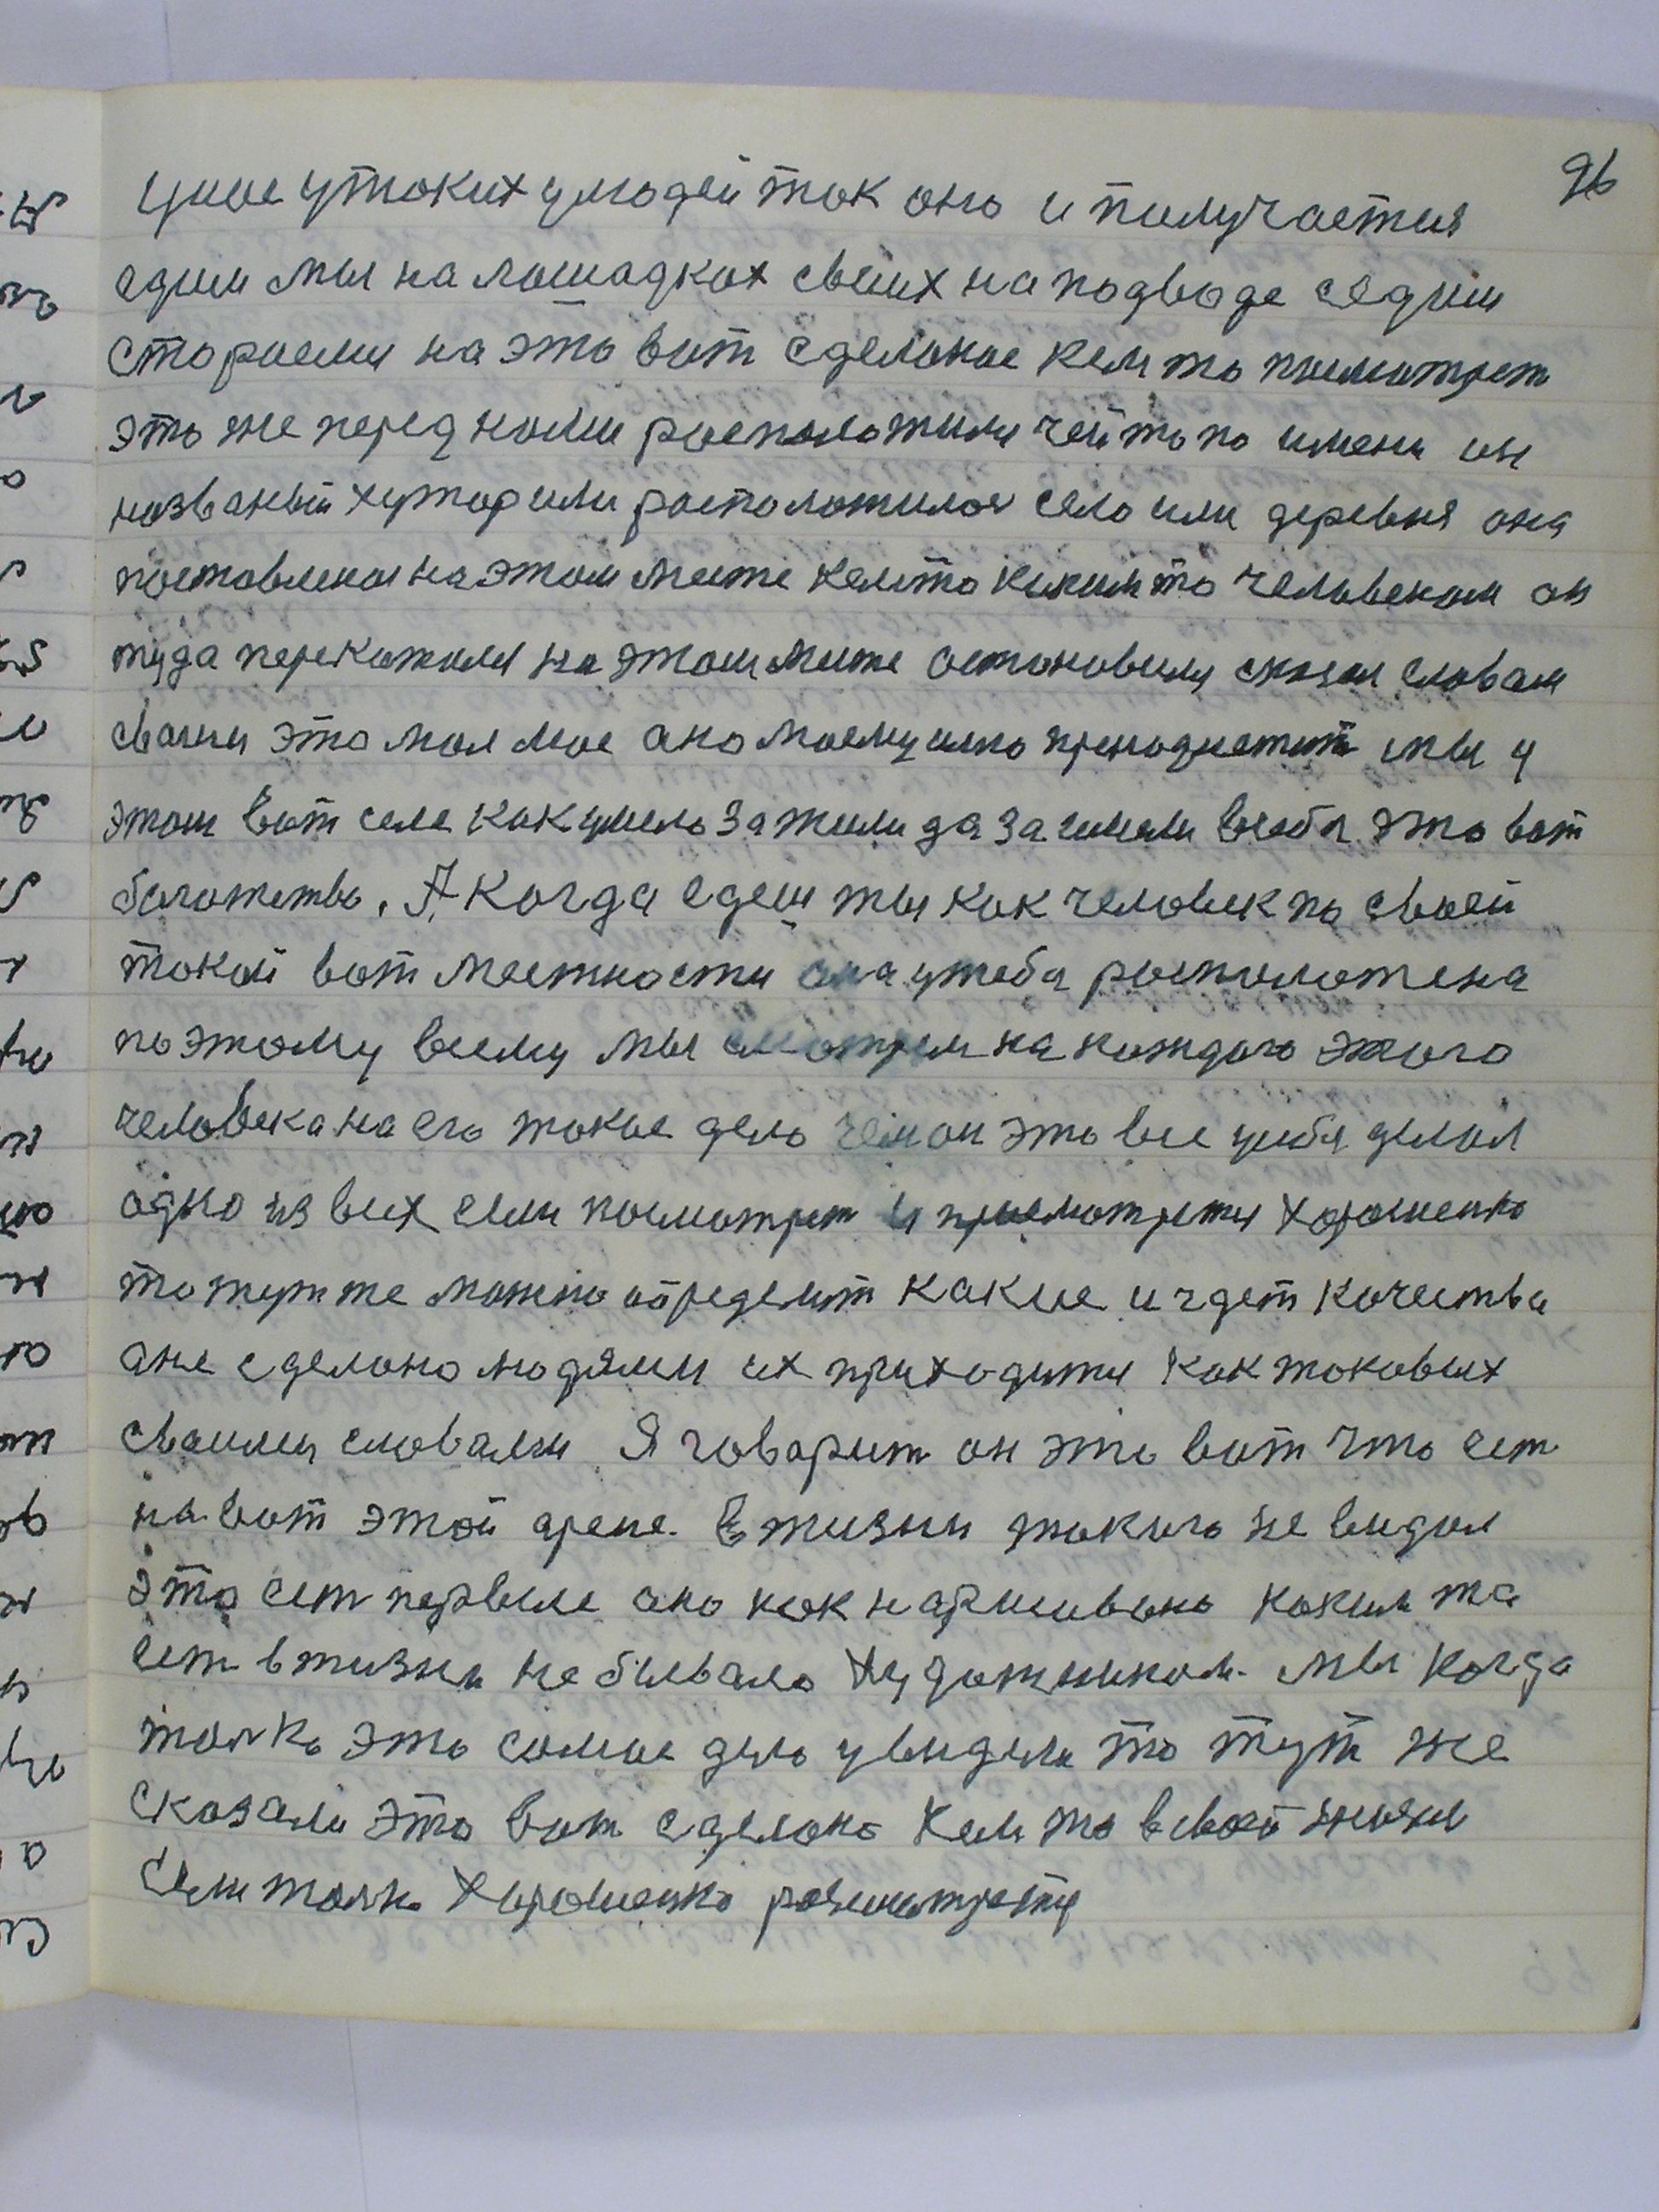 96
у таких улюдей так оно и получается
едим мы на лошадках своих на подводе сядим
стораемся на это вот сделоное кем то посмотреть
это же перед нами росположили чейто по имени ин
названый хутор или росположилоя село или деревня она
поставленоя на этом месте кемто каким то человеком он
туда перекотился на этом месте остоновился сказал словам
своими это моя мое оно моему имю мы у
этом вот селе как умело зажили да заимели всебя это вот
богатство. А когда едеш ты как человек по своей
токой вот местности она утебя росположена
поэтому всему мы смотрим на каждого этого
человека на его такое дело чем он это все усебя делал
одно из всех если посмотрет и присмотретця хорошенко
то тутже можно определит какие идет качества
оне сделоно людями их приходится как таковых
своими словами Я говорит он это вот что ест
на вот этой арене. В жизни такого не видал
это ест первые оно как нарисовоно коким то
ест в жизни не бывало художником. мы когда
толко это самое дело увидели то тут же
сказали это вот сделоно кем то в своей жизни
Если толко хорошенко розсмотретця